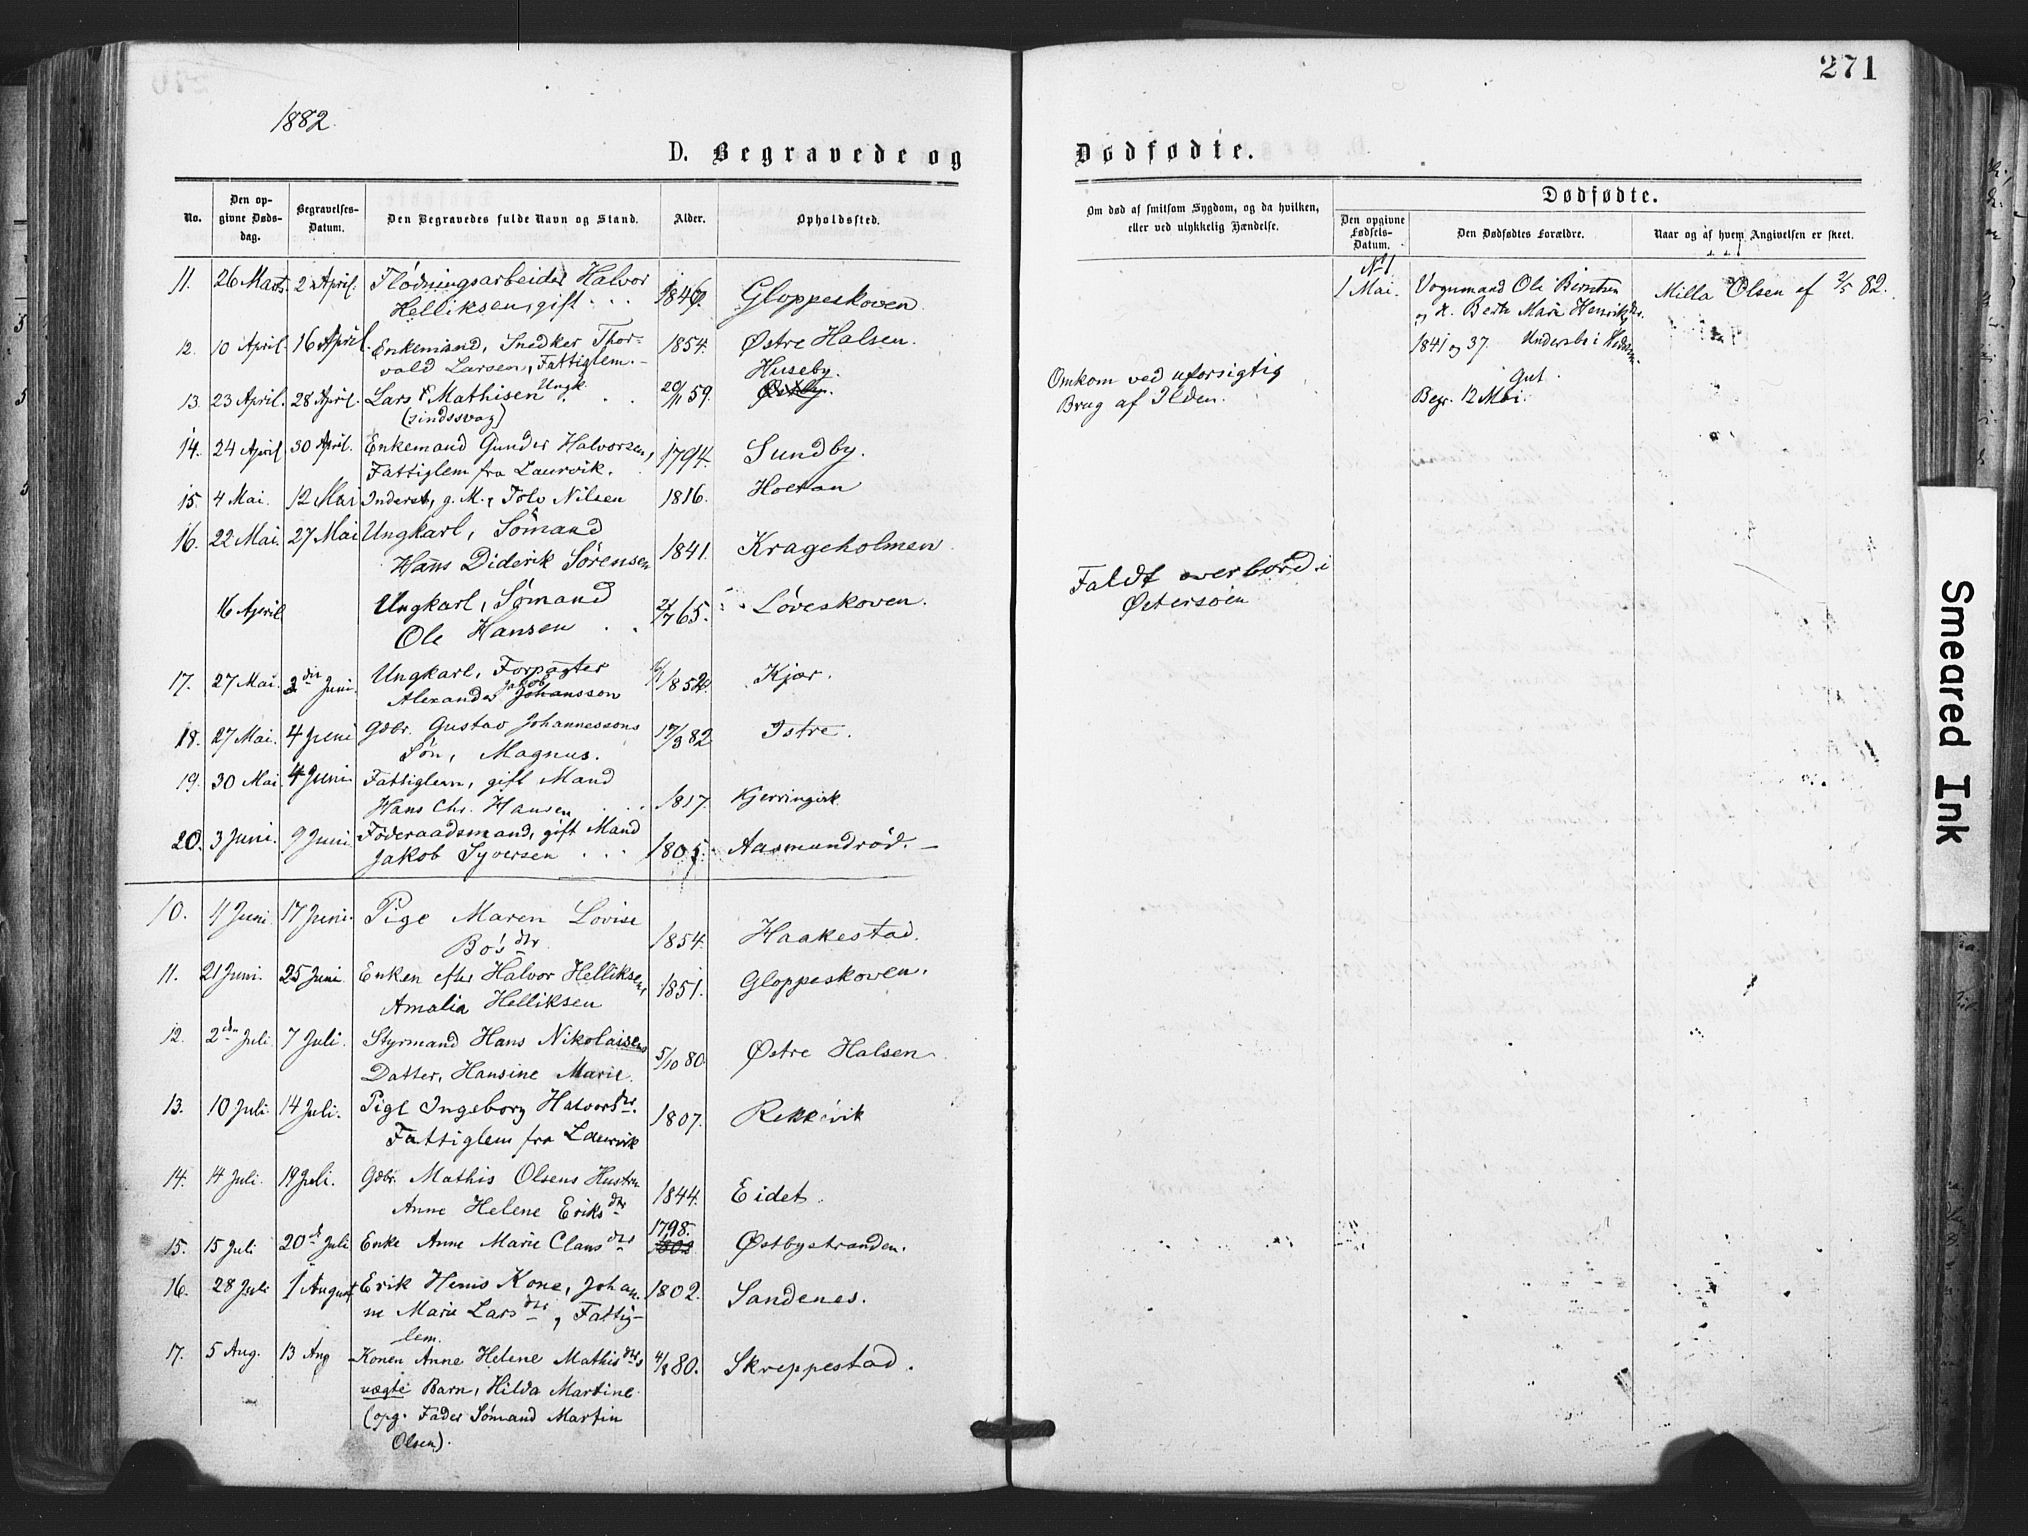 271
1882.
D. Begravede og Dødfødte.
No.
Den opgivne Dødsdag.
Begravelses-Datum.
Den Begravedes fulde Navn og Stand.
Alder.
Opholdssted.
Om død af smitsom Sygdom, og da hvilken,
eller ved ulykkelig Hændelse.
Dødfødte.
Den opgivne Fødsels-Datum.
Den Dødfødtes Forældre.
Naar og af hvem Angivelsen er skeet.
11. 26 Marts. 2 April. Flødningsarbeider Halvor
Helliksen, gift Gloppeskoven
12. 10 April. 16 April. Enkemand, Snedker Thor-
vald Larsen, Fattiglem. 1854. Østre Halsen.
Huseby.
13. 23 April. 28 April. Lars Mathisen Ungk. 20/11 59. Østby.
(sindssvag)
Omkom ved uforsigtig
Brug af Ilden.
14. 24 April 30 April. Enkemand Gunder Halvorsen,
Fattiglem fra Laurvik. 1794. Sundby.
15. 4 Mai. 12 Mai Inderst, g. M., Tolv Nilsen 1816. Holtan
16. 22 Mai. 27 Mai Ungkarl, Sömand
Hans Diderik Sörensen 1841. Krageholmen.
16 April Ungkarl, Sömand
Ole Hansen 65. Löveskoven.
Faldt overbord i
Østersöen
17. 27 Mai. 2den Juni. Ungkarl, Forpagter
Jakob
Alexander Johanssen 1852 Kjær.
18. 27 Mai. 4 Juni Gdbr. Gustav Johannessons
Sön, Magnus. 17/3 82 Istre.
19. 30 Mai 4 Juni Fattiglem, gift Mand
Hans Chr. Hansen 1817. Kjerringvik
20. 3 Juni. 9 Juni Föderaadsmand, gift Mand
Jakob Syversen 1805. Aasmundröd.
10. 4 Juni 17 Juni. Pige Maren Lovise
Bo's dtr. 1854. Haakestad.
11. 21 Juni. 25 Juni Enken efter Halvor Helliksen,
Amalia Helliksen 1851. Gloppeskoven.
12. 2den Juli 7 Juli. Styrmand Hans Nikolaisens
Datter, Hansine Marie. 5/10 80 Østre Halsen
13. 10 Juli 14 Juli. Pige Ingeborg Halvorsdtr.
Fattiglem fra Laurvik 1807. Rekkevik
14. 14 Juli. 19 Juli. Gdbr. Mathis Olsens Hustru
Anne Helene Eriksdtr 1844. Eidet.
15. 15 Juli 20de Juli Enke Anne Marie Clausdtr 1798. 1802 Østbystranden.
16. 28 Juli 1 August Erik Henis Kone, Johan-
ne Marie Larsdtr, Fattig-
lem. 1802. Sandenes.
17. 5 Aug. 13 Aug Konen Anne Helene Mathisdtrs
uægte Barn, Hilda Martine 4/8 80. Skreppestad.
(opg. Fader Sömand Martin
Olsen).
No 1
1 Mai. Vognmand Ole Berntsen
og K. Berte Marie Henriksdtr.
1841 og 37.
Gut.
Begr. 12 Mai.
Milla Olsen af 2/5 82.
Smeared Ink